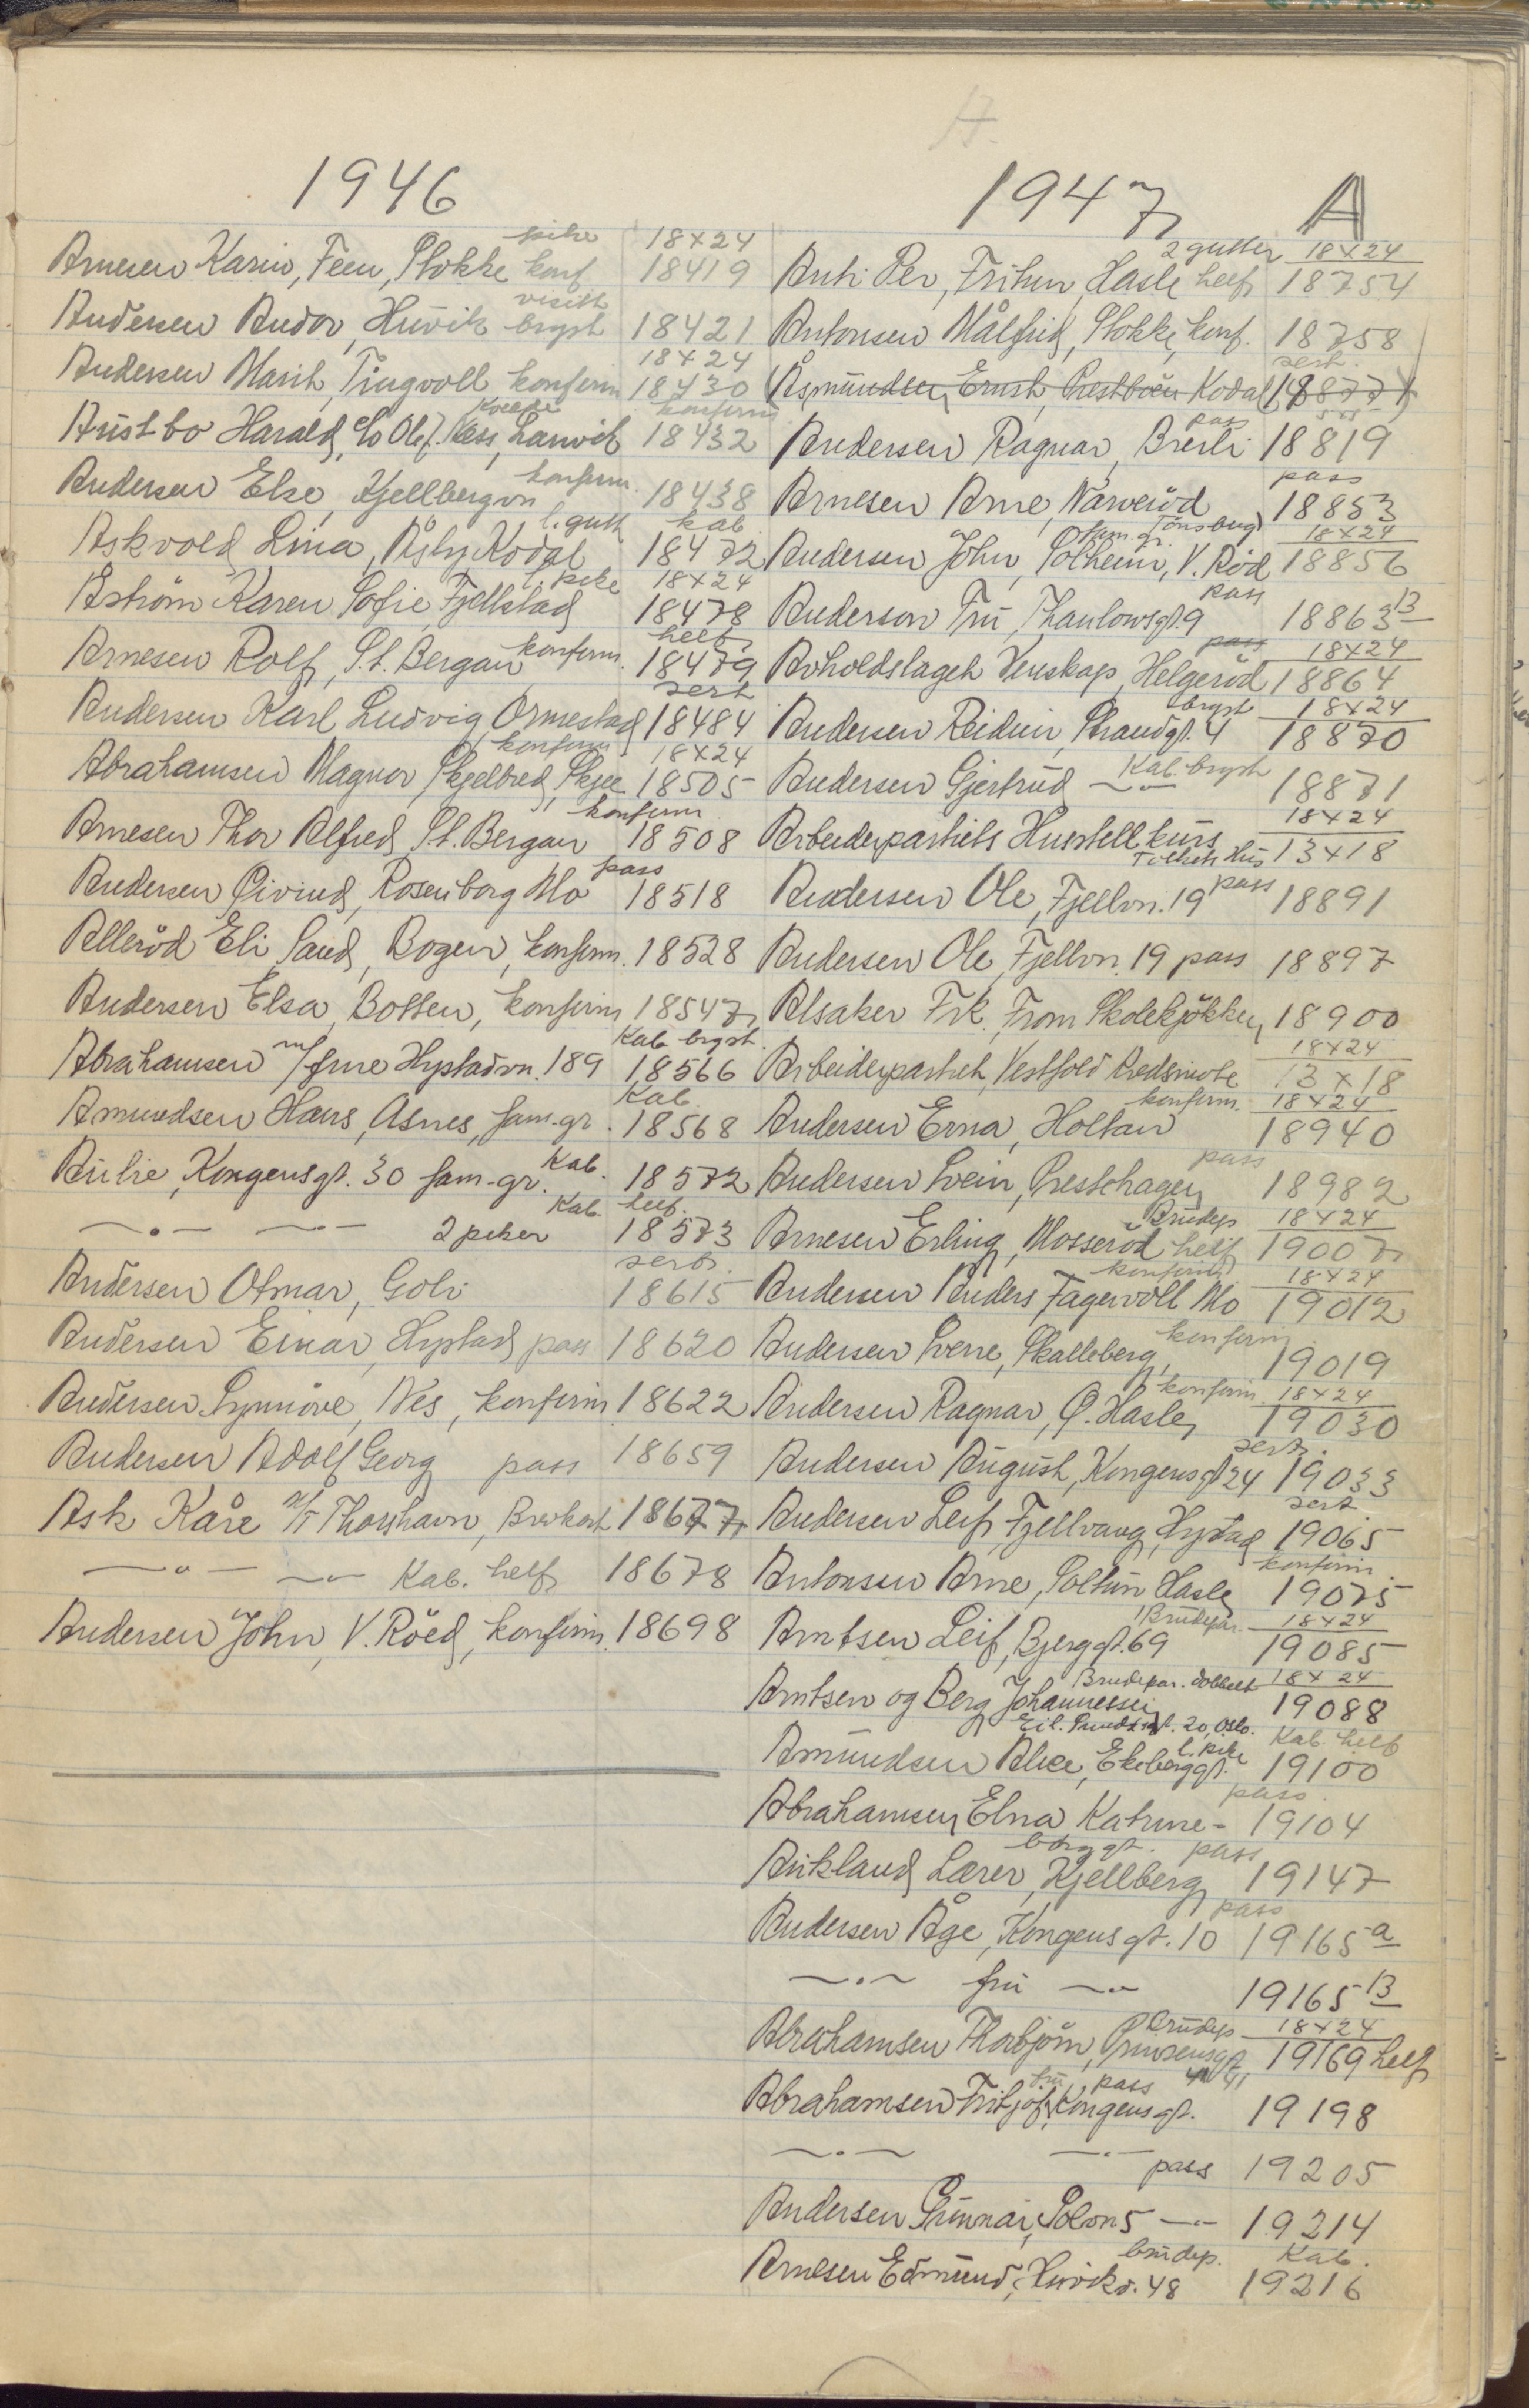 A
1946
pike 18x24
Arnesen Karin, Feen, Stokke konf 18419
visitt
Andersen Andor, Huvik bryst 18421
18x24
Andersen Marit, Tingvoll konfirm 18430
konfirm
Austbo Harald, c/o Olef. Næss, Larvik 18432
Andersen Else, Kjellbergvn konfirm. 18438
l. gutt kab
Askvold Lina, Åsly, Kodal 18472
l. pike 18x24
Åström Karen Sofie, Fjellstad 18478
helf
Arnesen Rolf, St. Bergan konfirm. 18479
sert
Andersen Karl Ludvig, Ormestad 18484
konfirm 18x24
Abrahamsen Magnor, Skjelbred, Skjee 18505
konfirm
Arnesen Thor Alfred, St. Bergan 18508
pass
Andersen Øivind, Rosenborg Mo 18518
Alleröd Eli Sand, Bogen, konfirm. 18528
Andersen Elsa, Botten, konfirm 18547
Kab. bryst.
Abrahamsen m/frue Hystadvn. 189 18566
Kab.
Amundsen Hans, Asnes, fam.gr. 18568
Aulie, Kongensgt. 30 fam-gr. Kab. 18572
Kab. helf.
—〃— —〃— 2 piker 18573
sert.
Andersen Otmar, Goli 18615
Andersen Einar, Hystad pass 18620
Andersen Synnöve, Nes, konfirm 18622
Andersen Adolf Georg pass 18659
Ask Kåre M/T Thorshavn, Brevkort 18677
—〃— —〃— Kab. helf 18678
Andersen John, V. Röed, konfirm. 18698
1947 A
2 gutter 18x24
Anti Per, Fritun, Hasle helf 18754
Antonsen Målfrid, Stokke, konf. 18758
sert.
(Åsmundsen, Ernst, Prestbøen Kodal 18877)
pass
Andersen Ragnar, Breili 18819
pass
Arnesen Arne, Narveröd 18853
fam.gr. Tönsberg 18x24
Andersen John, Solheim, V. Röd 18856
pass
Anderson Fru, Thaulowsgt. 9 18863 B
pass 18x24
Avholdslaget Venskap, Helgeröd 18864
bryst 18x24
Andersen Reidun, Strandgt. 4 18870
Kab. bryst
Andersen Gjertrud —〃— 18871
18x24
Arbeiderpartiets Husstell kurs 13x18
Folkets Hus
Andersen Ole, Fjellvn. 19 pass 18891
Andersen Ole, Fjellvn. 19 pass 18897
Alsaker Frk. From Skolekjøkken 18900
18x24
Arbeiderpartiet, Vestfold Kredsmøte 13x18
konfirm. 18x24
Andersen Erna, Holtan 18940
pass
Andersen Svein, Presthagen 18982
Brudep 18x24
Arnesen Erling, Mosseröd helf 19007
konfirm 18x24
Andersen Anders Fagervoll Mo 19012
konfirm
Andersen Sverre, Skalleberg, 19019
konfirm 18x24
Andersen Ragnar, Ø. Hasle, 19030
sert.
Andersen August, Kongensgt 24 19033
sert
Andersen Leif, Fjellvang, Hystad 19065
konfirm.
Antonsen Arne, Soltun Hasle 19075
Brudepar. 18x24
Arntsen Leif, Bjerggt. 69 19085
Brudepar. dobbelt 18x24
Arntsen og Berg Johannessen 19088
Eil. Sundtsgt. 20, Oslo.
l. pike Kab. helf
Amundsen Alice, Ekeberggt. 19100
pass.
Abrahamsen Elna Katrine - 19104
pass
Aukland, Lærer, Kjellberg 19147
pass
Andersen Åge, Kongensgt. 10 19165 a
—〃— fru —〃— 19165 B
Brudep 18x24
Abrahamsen Thorbjörn, Prinsensgt. 19169 helf
fru pass
Abrahamsen Fritjof, Kongensgt. 19198
—〃— —〃— pass 19205
Andersen Gunnar, Solvn 5 —〃— 19214
brudep. Kab.
Arnesen Edmund, Huvikv. 48 19216